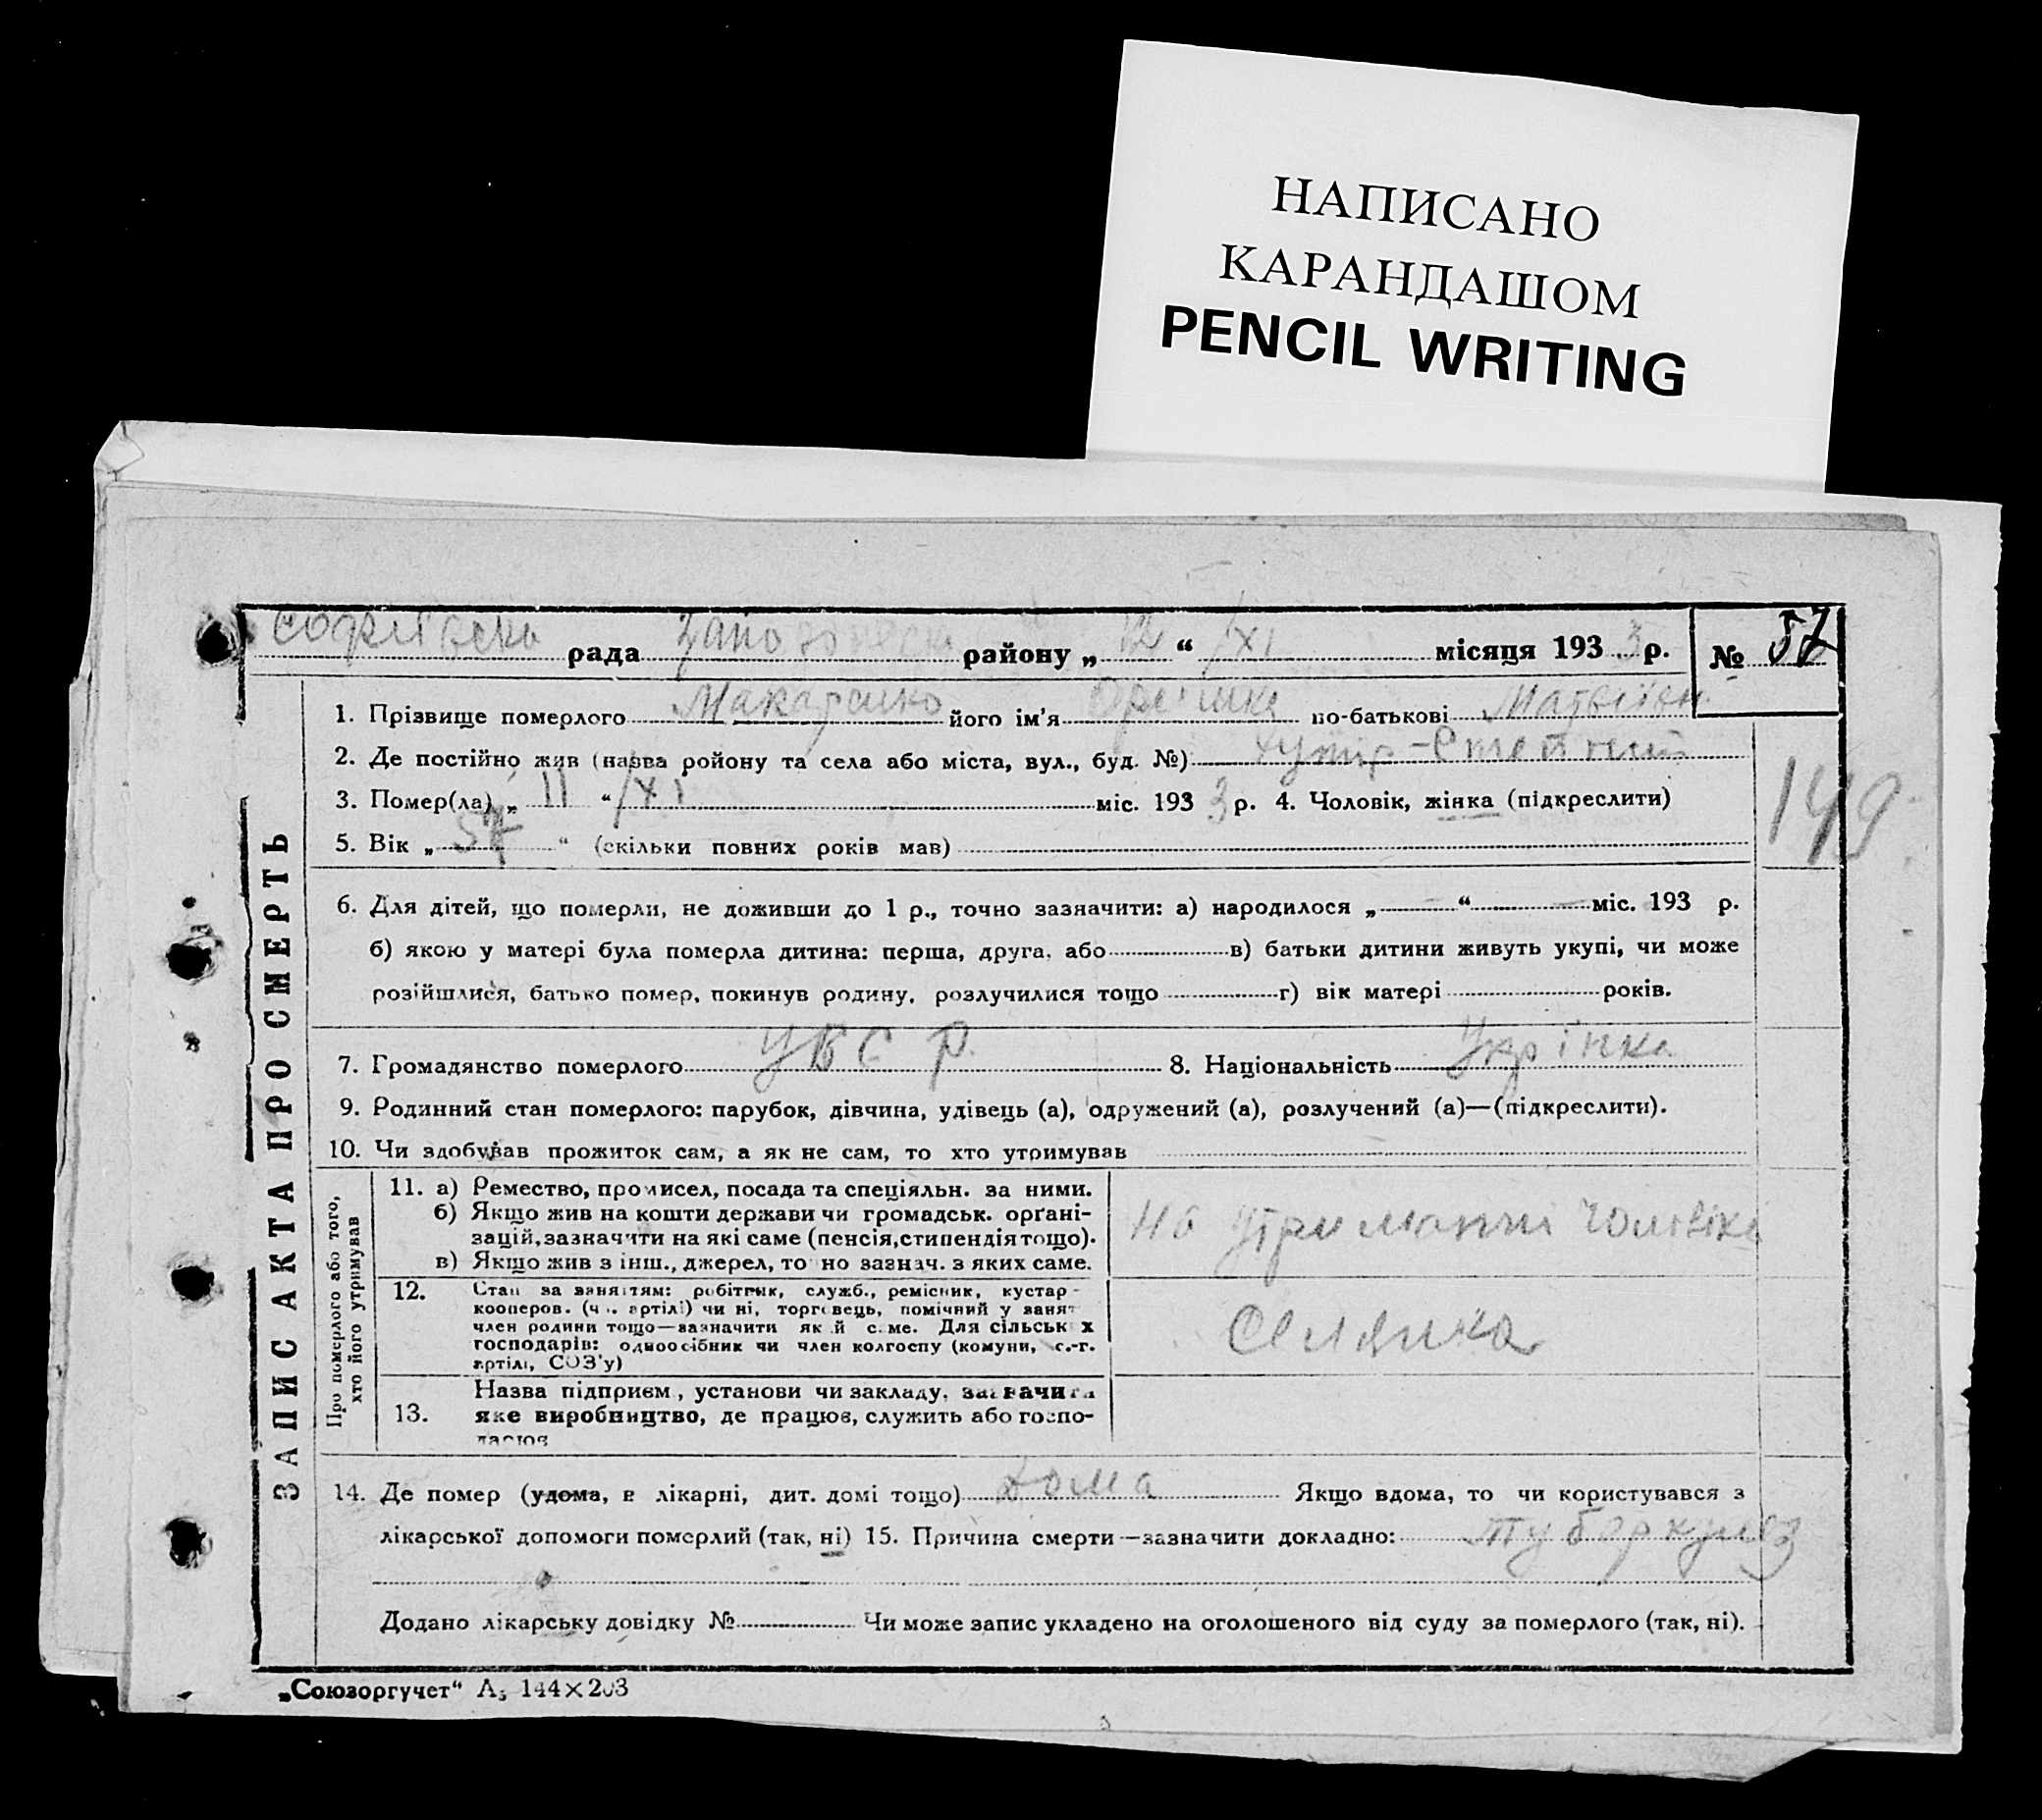 НАПИСАНО
КАРАНДАШОМ
PENCIL WRITING
Софіївська рада району „ 12 “ /XI місяця 193 3 р. № 57
ЗАПИС АКТА ПРО СМЕРТЬ
1. Прізвище померлого Макаренко його ім'я по-батькові
2. Де постійно жив (назва ройону та села або міста, вул., буд. №) хутір-Степний
3. Помер(ла) „ 11 “ /XI міс. 193 3 р. 4. Чоловік, жінка (підкреслити)
149
5. Вік „ 57 “ (скільки повних років мав)
6. Для дітей, що померли, не доживши до 1 р., точно зазначити: а) народилося „ — “ — міс. 193 р.
б) якою у матері була померла дитина: перша, друга, або в) батьки дитини живуть укупі, чи може
розійшлися, батько помер, покинув родину, розлучилися тощо г) вік матері років.
7. Громадянство померлого УВСР 8. Національність Укрінка
9. Родинний стан померлого: парубок, дівчина, удівець (а), одружений (а), розлучений (а)—(підкреслити).
10. Чи здобував прожиток сам, а як не сам, то хто утримував
Про померлого або того,
хто його утримував
11. а) Ремество, промисел, посада та спеціяльн. за ними.
б) Якщо жив на кошти держави чи громадськ. орґані-
зацій, зазначити на які саме (пенсія, стипендія тощо).
в) Якщо жив з інш., джерел, точно зазнач. з яких саме.
на утриманні чоловіка
12. Стан за заняттям: робітник, служб., ремісник, кустар-
кооперов. (чл. артілі) чи ні, торговець, помічний у занят
член родини тощо—зазначити який саме. Для сільських
господарів: одноосібник чи член колгоспу (комуни, с.-г.
артілі, СОЗ'у)
Селянка
13. Назва підприєм., установи чи закладу, зазначити
яке виробництво, де працює, служить або госпо-
дарює
14. Де помер (удома, в лікарні, дит. домі тощо) дома Якщо вдома, то чи користувався з
лікарської допомоги померлий (так, ні) 15. Причина смерти—зазначити докладно: туборкульз
Додано лікарську довідку № Чи може запис укладено на оголошеного від суду за померлого (так, ні).
„Союзоргучет“ А5 144×203